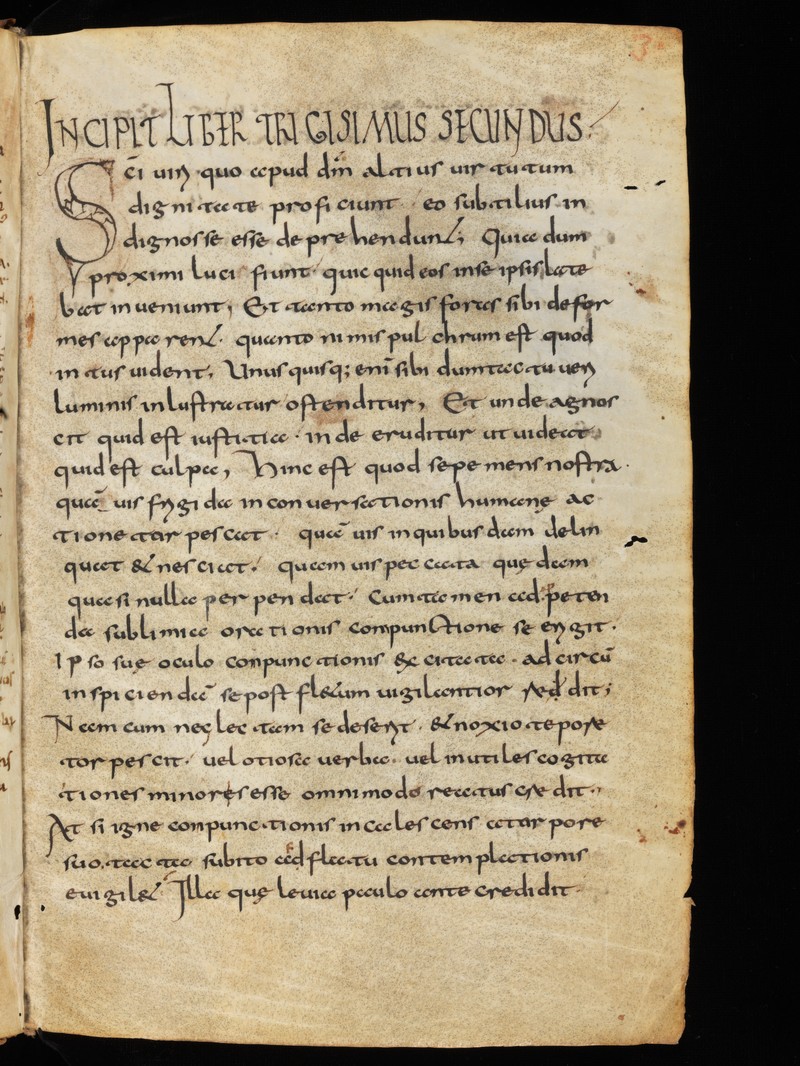 INCIPIT LIBER TRIGISIMUS SECUNDUS.
S c̄i uiri quo apud dm̄ altius uirtutum
dignitate proficiunt eo subtilius in
dignos se esse deprehendunt; Quia dum
proximi luci fiunt quic quid eos in se ipsis late
bat inueniunt; Et tanto magis foras sibi defor
mes apparent. quanto nimis pulchrum est quod
intus uident; Unusquisq; eni̅ sibi dum tactu ueri
luminis inlustratur ostenditur; Et unde agnos
cit quid est iustitia. inde eruditur ut uideat
quid est culpa; Hinc est quod sepe mens nostra.
qua̅uis frigida in conuersationis humanę ac
tione torpescat. qua̅uis in quibusdam delin
quat & nesciat. quamuis peccata quędam
quasi nulla perpendat. Cum tamen ad peten
da sublimia orationis compunctione se erigit.
Ipso suę oculo conpunctionis excitata. ad circu̅
inspicienda̅ se post fletum uigilantior reddit;
Nam cum neglectam se deserit. & noxio tepore
torpescit. uel otiosa uerba. uel inutiles cogita
tiones minoris esse omnimodo reatus credit.
At si igne conpunctionis incalescens a torpore
suo tacta subito ad flatu contemplationis
euigilet. Illa quę leuia paulo ante credidit.